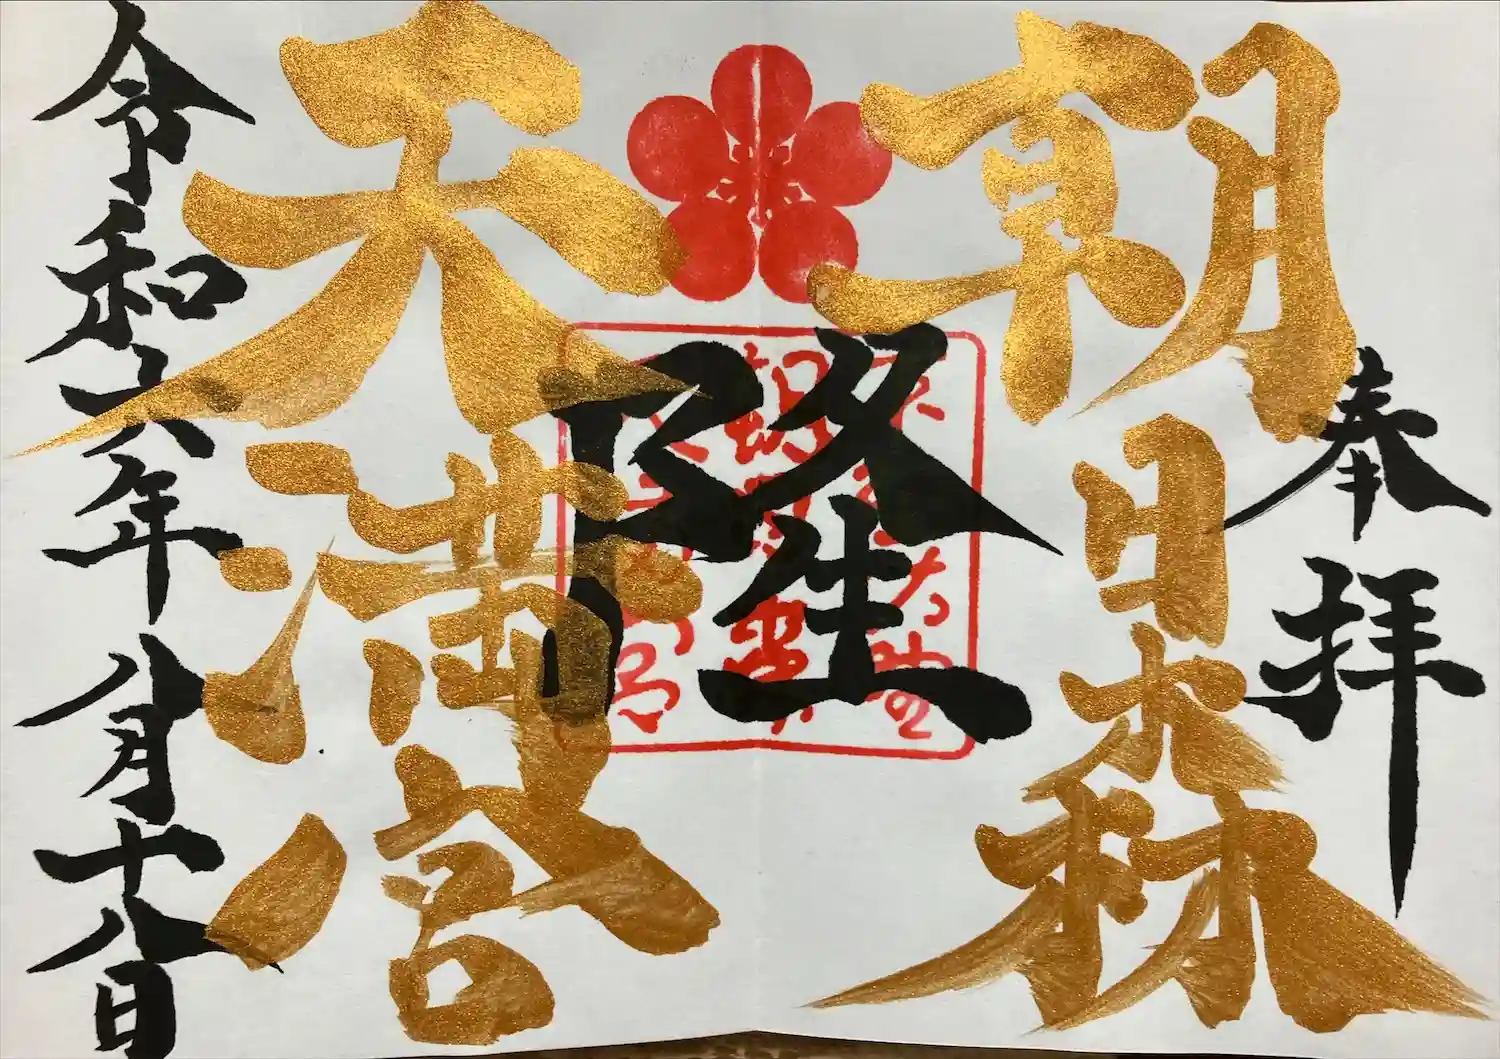 奉拝
朝日森
隆生
天満宮
令和六年八月十八日